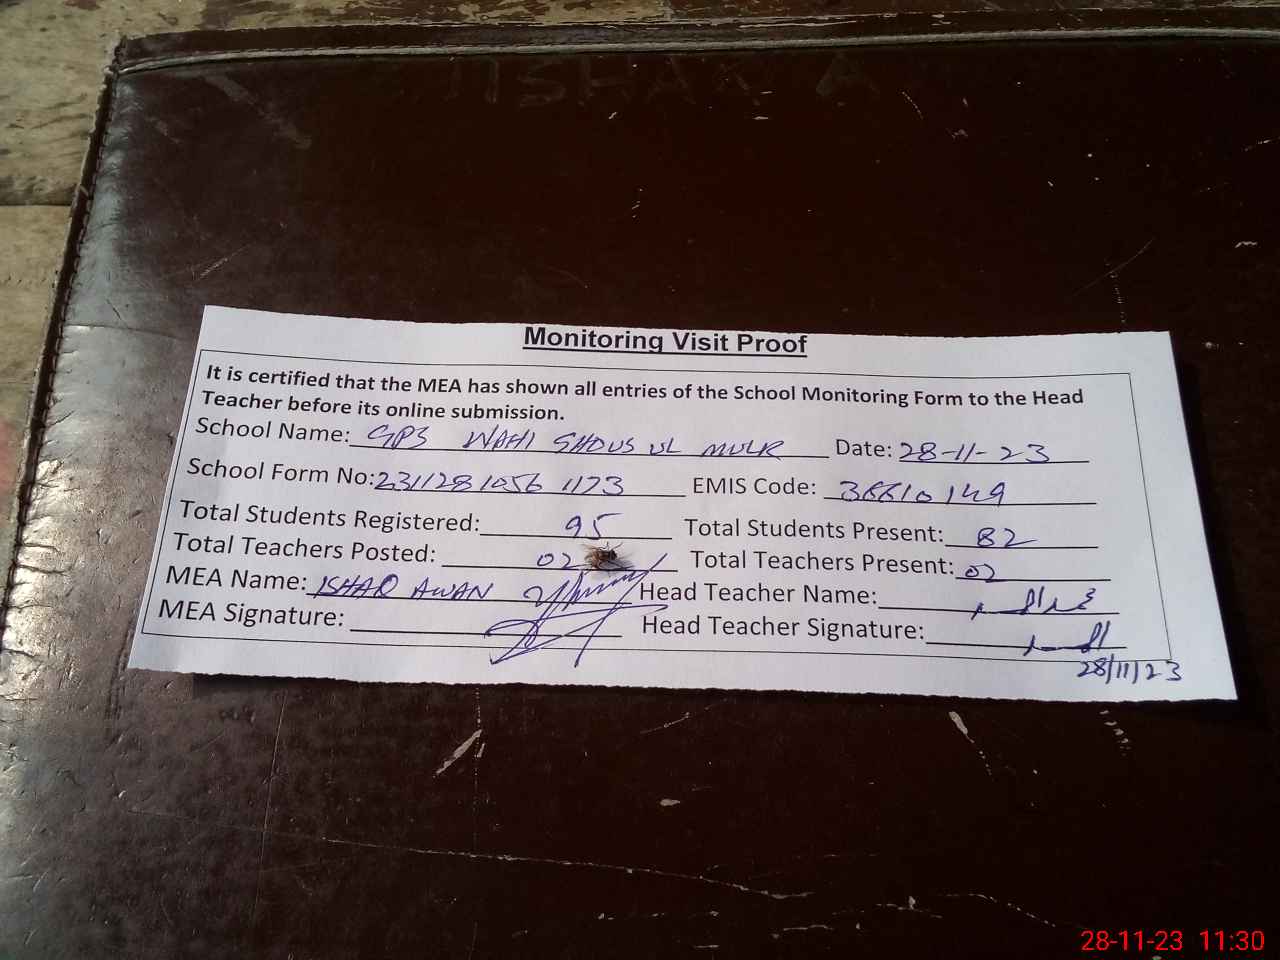 ISHAQ A
Monitoring Visit Proof
It is certified that the MEA has shown all entries of the School Monitoring Form to the Head
Teacher before its online submission.
School Name: GPS WAHI GHOUS UL MULK Date: 28-11-23
School Form No: 23112810561173 EMIS Code: 36610149
Total Students Registered: 95 Total Students Present: 82
Total Teachers Posted: 02 Total Teachers Present: 02
MEA Name: ISHAQ AWAN Head Teacher Name:
MEA Signature: Head Teacher Signature:
28/11/23
28-11-23 11:30